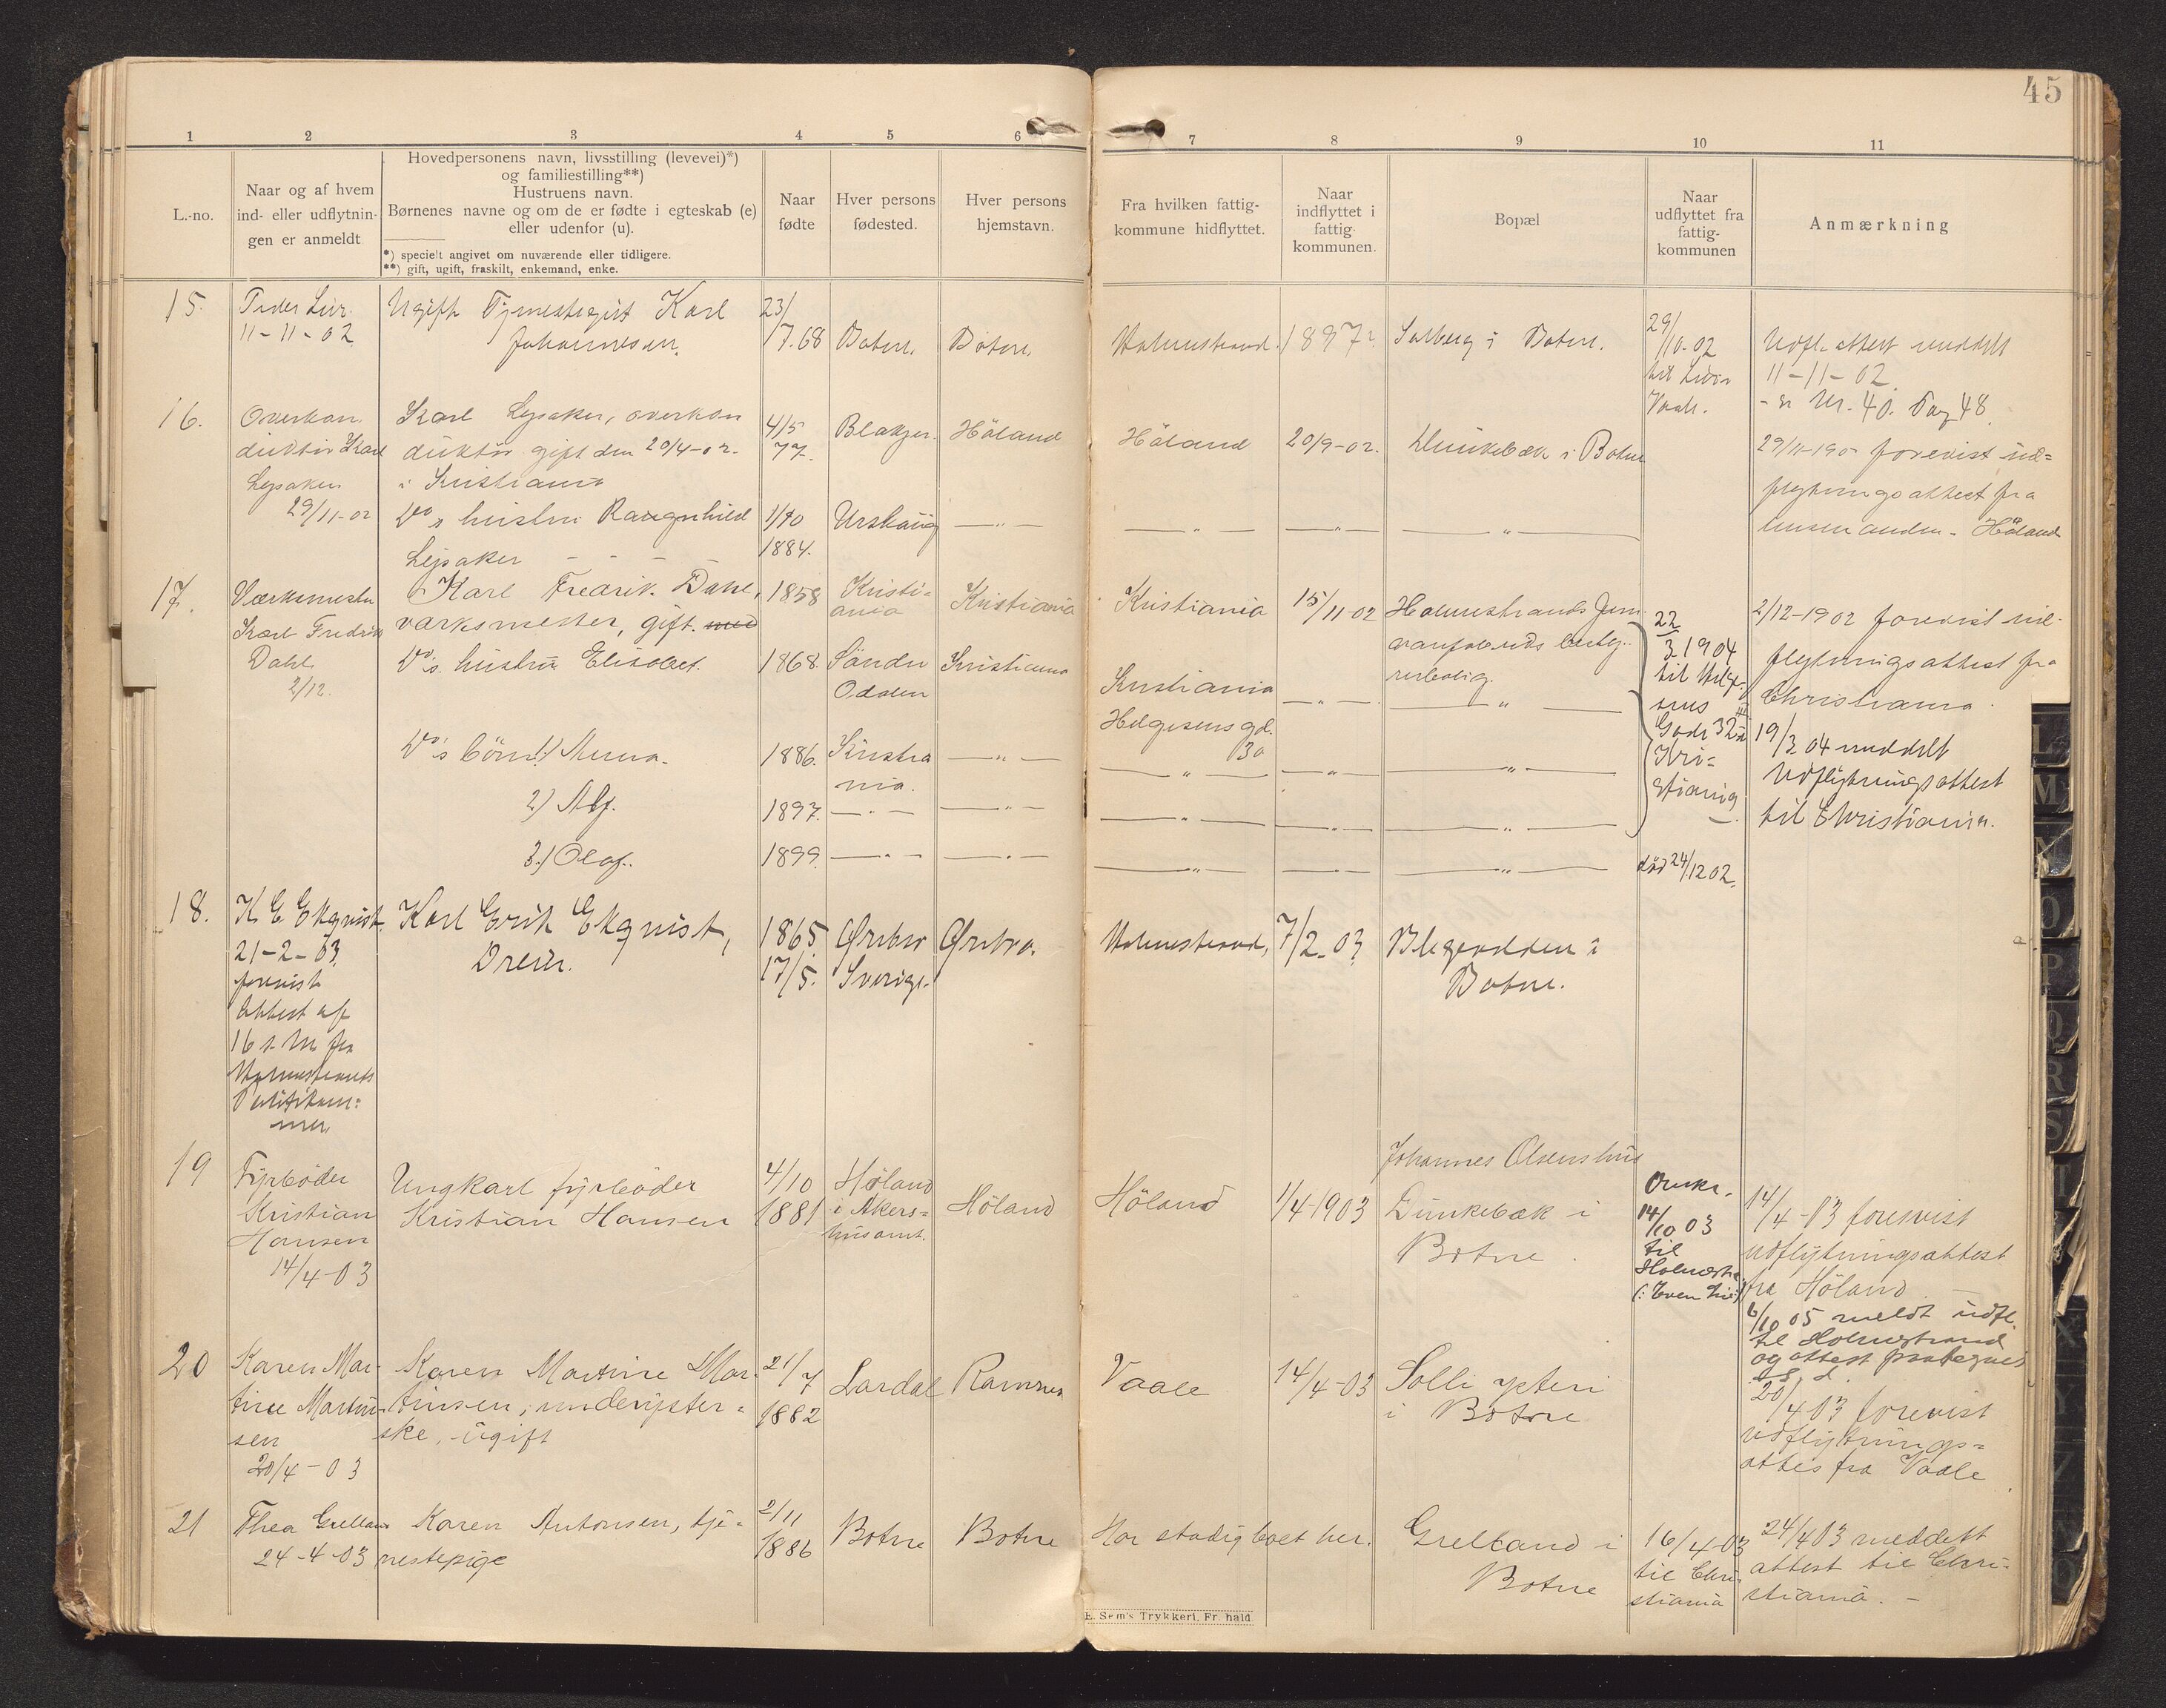 45
1 2 3 4 5 6 7 8 9 10 11
L.-no.
Naar og af hvem
ind- eller udflytnin-
gen er anmeldt
Hovedpersonens navn, livsstilling (levevei)*)
og familiestilling**)
Hustruens navn.
Børnenes navne og om de er fødte i egteskab (e)
eller udenfor (u).
*) specielt angivet om nuværende eller tidligere.
**) gift, ugift, fraskilt, enkemand, enke.
Naar
fødte
Hver persons
fødested.
Hver persons
hjemstavn.
Fra hvilken fattig-
kommune hidflyttet.
Naar
indflyttet i
fattig-
kommunen.
Bopæl
Naar
udflyttet fra
fattig-
kommunen
Anmærkning
15.
Peder
11-11-02
Ugift Karl
Johannesen.
23/
7.68
Botne.
Botne.
Holmestrand.
1897?
Solberg i Botne.
29/
10-02
til
Vaale.
Udfl. attest meddelt
11-11-02.
- se Nr. 40. Pag 48.
16.
Overkon
duktör Karl
Lysaker
29/11-02
Karl Lysaker, overkon
duktör gift den 20/4-02.
i Kristiania
Do s hustru Rangnhild
Lysaker - - -
4/5
77.
1/10
1884.
Blakjer.
Urskaug
Höland
—"—
Höland
—"—
20/9-02.
—"—
Dunkebæk i Botne
—"—
29/11-190 forevist ud=
flytningsattest fra
lensmanden - Höland
17.
Værksmester
Karl Fredrik
Dahl
2/12.
Karl Fredrik Dahl,
værksmester, gift. med
Do's. hustru Elisabet.
Do's börn 1) Anna.
2) Alf.
3.) Olaf.
1858
1868
1886.
1897.
1899.
Kristi=
ania
Söndre
Odalen
Kristia
nia.
—"—
—"—
Kristiania
Kristiania
—"—
—"—
—"—
Kristiania
Kristiania
Helgesens gd.
30
—"—
—"—
—"—
15/11-02
—"—
—"—
—"—
—"—
Holmestrands Jern
—"—
—"—
—"—
—"—
22
3 1904
til Helge-
sens
Gade 32
Kri=
stiania.
död 24/12 02.
2/12-1902 forevist ud-
flytningsattest fra
Christiania.
19/3 04 meddelt
Udflytningsattest
til Christiania.
18.
K E Ekqvist
21-2-03.
forevist
Attest af
16 s. M. fra
Holmestrands
Politikam=
mer
Karl Erik Ekqvist,
Dreier.
1865
17/5.
Ørebro
Sverige.
Ørebro.
Holmestrand,
7/2-03
i
Botne.
19
Fyrböder
Kristian
Hansen
14/4-03
Ungkarl fyrböder
Kristian Hansen
4/10
1881
Höland
i Akers=
husamt.
Höland
Höland
1/4-1903
Johannes Olsens hus
Dunkebæk i
Botne.
14/10 03
til
Holmestr.
14/4-03 forevist
udflytningsattest
fra Höland.
6/10 05 meldt udfl.
til Holmestrand
og attest
20
Karen Mar-
tine Martin-
sen
20/4-03
Karen Martine Mar-
tinsen, underyster=
ske, ugift
21/7
1882
Lardal
Ramnes
Vaale
14/4-03
Solli ysteri
i Botne
20/4 03 forevist
udflytnings=
attes fra Vaale
21
Thea Grelland
24-4-03
Karen Antonsen, tje=
nestepige
2/11
1886
Botne
Botne
Har stadig boet her.
Grelland i
Botne
16/4-03
til Chri-
stiania
24/4 03 meddelt
attest til Chri-
stiania. -
E. Sem's Trykkeri, Fr.hald.
L
M
N
O
P
Q
R
S